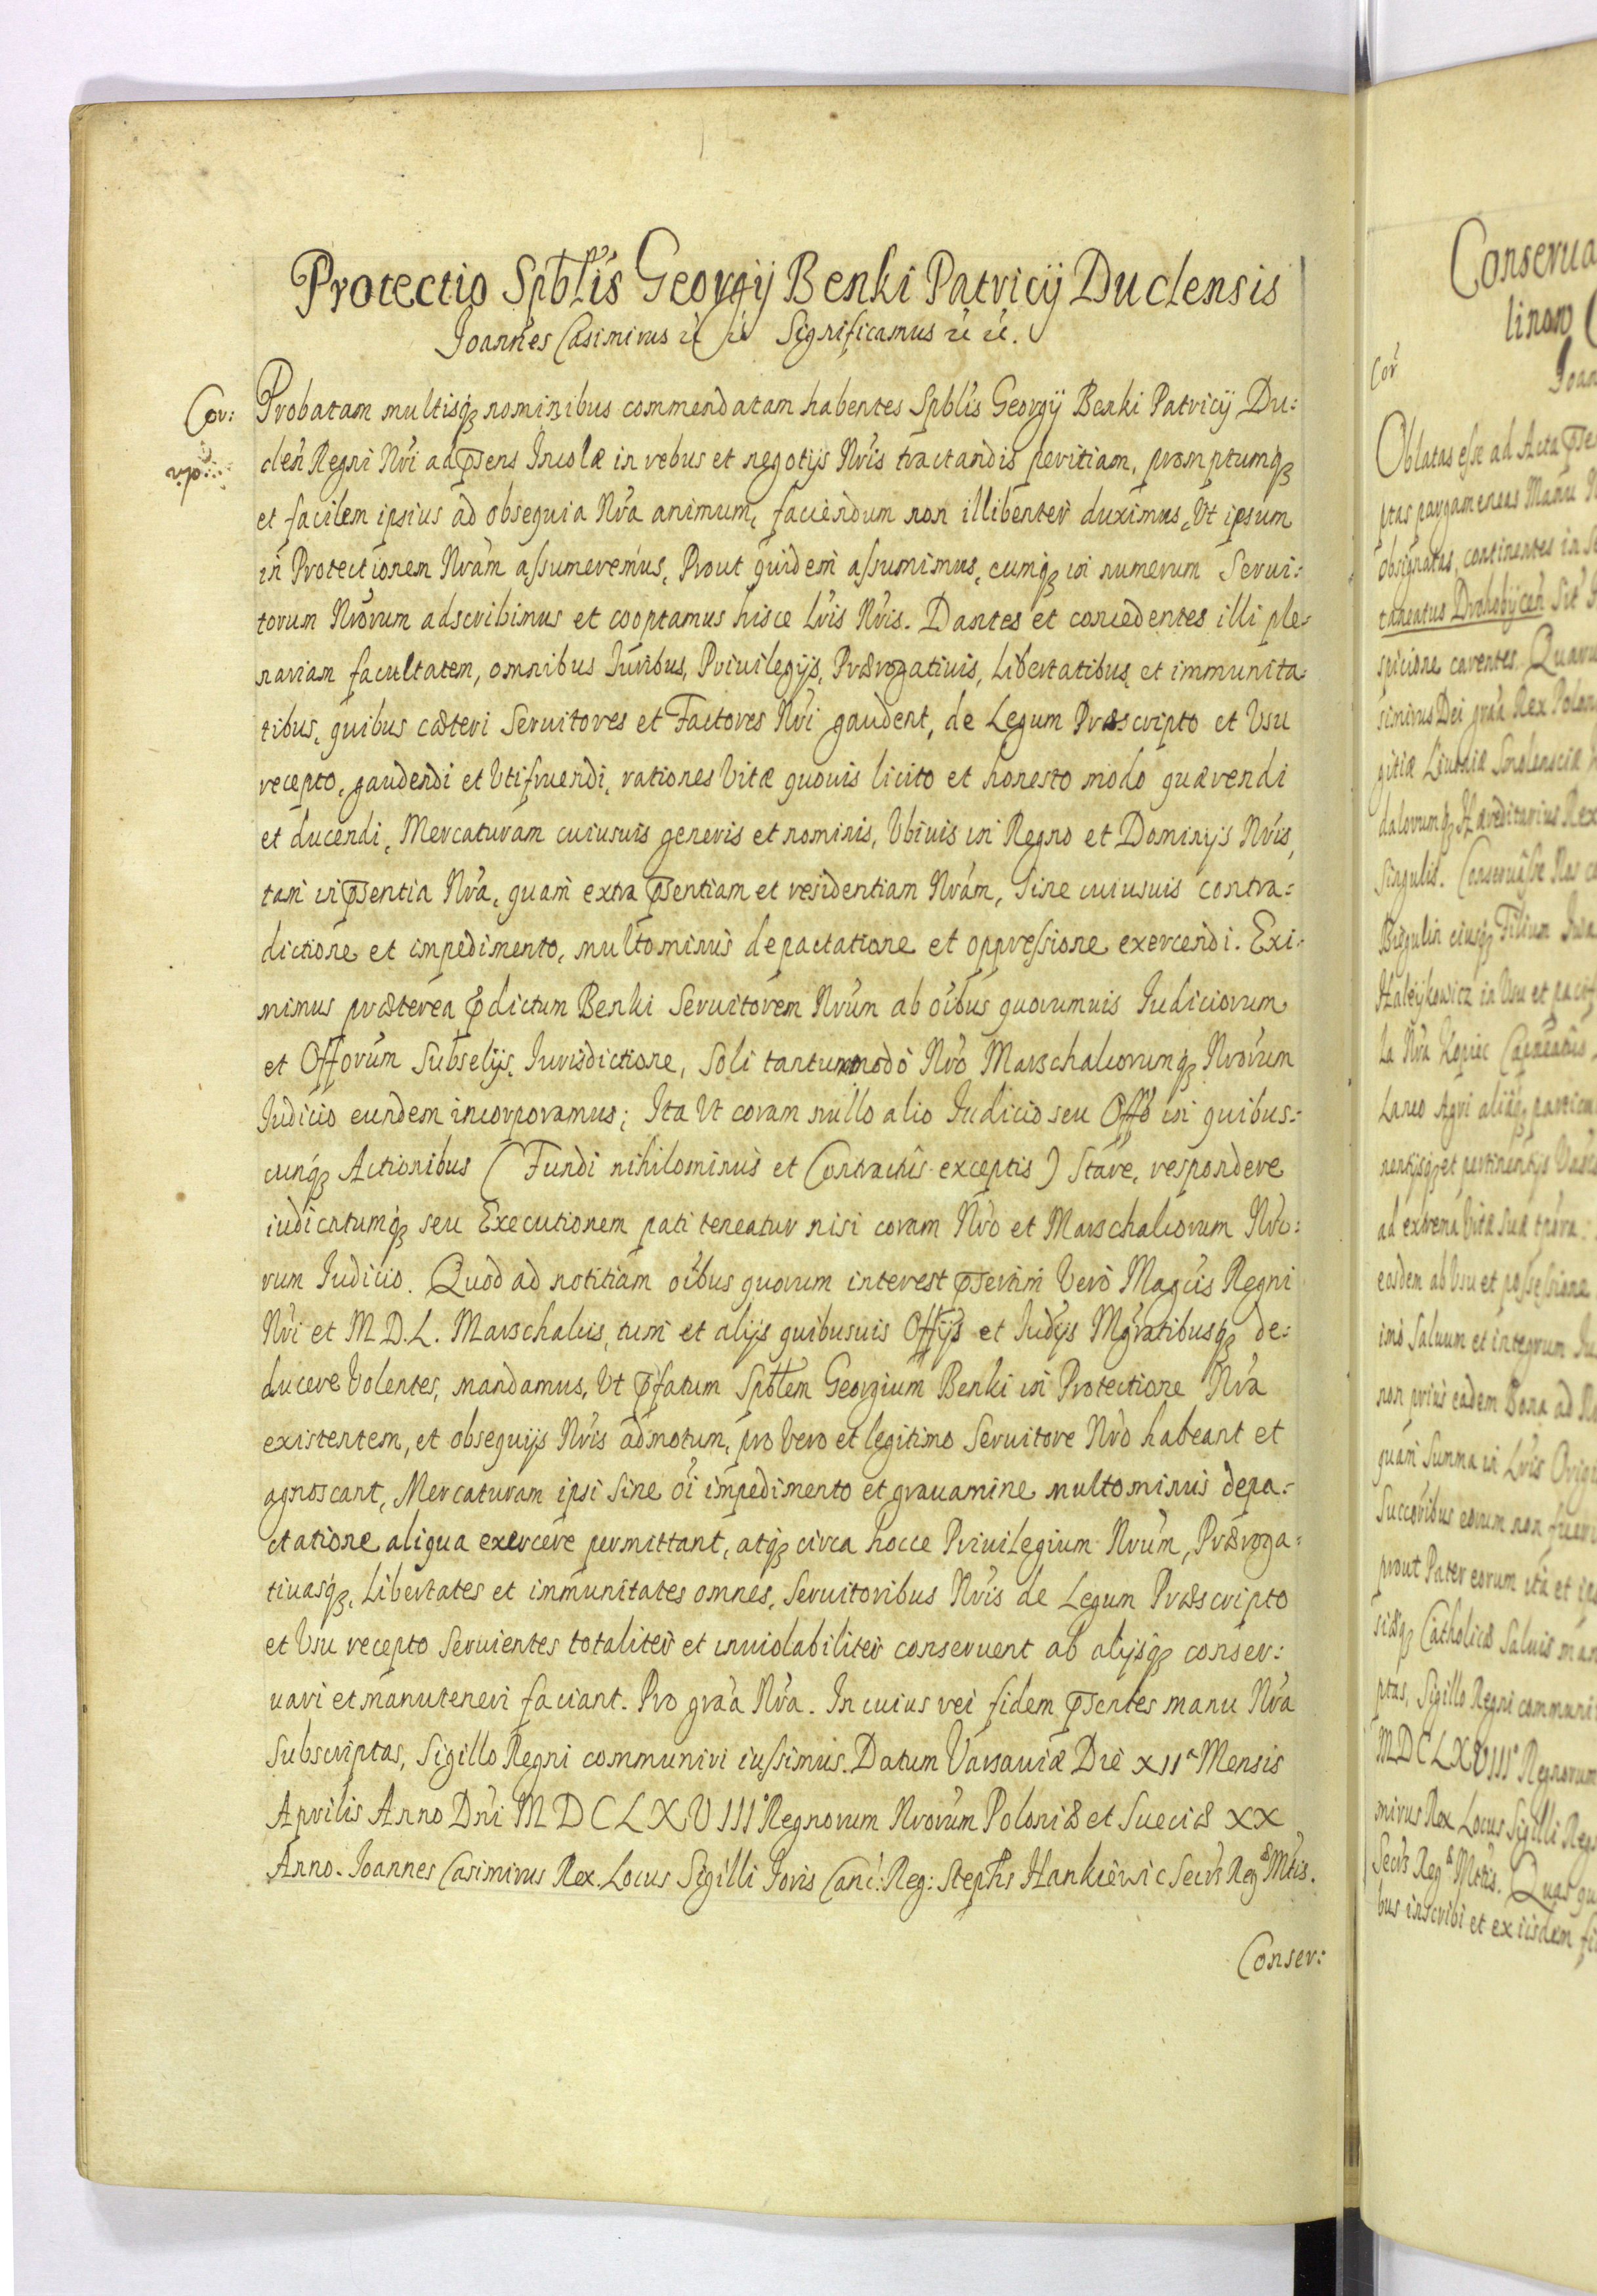 Protectio Spblis Georgij Benki Patricij Duclensis
Joannes Casimirus Significamus
Cor: Probatam multisq nominibus commendatam habentes Spblis Georgij Benki Patricij Du:
clen Regni Nri ad psens Incolæ in rebus et negotijs Nris tractandis peritiam, promptumq
et facilem ipsius ad obsequia Nra animum, faciendum non illibenter duximus, Ut ipsum
in Protectionem Nram assumeremus, Prout quidem assumimus, eumq in numerum Serui:
torum Nrorum adscribimus et cooptamus hisce Lris Nris. Dantes et concedentes illi ple:
nariam facultatem, omnibus Iuribus, Priuilegijs, Prærogatiuis, Libertatibus, et immunita:
tibus, quibus cæteri Seruitores et Factores Nri gaudent, de Legum Præscripto et Usu
recepto, gaudendi et Utifruendi, rationes Vitæ quouis licito et honesto modo quærendi
et ducendi, Mercaturam cuiusuis generis et nominis, Ubiuis in Regno et Dominijs Nris,
tam in psentia Nra, quam extra psentiam et residentiam Nram, Sine cuiusuis contra:
dictione et impedimento, multominus depactatione et oppressione exercendi. Exi:
mimus præterea pdictum Benki Seruitorem Nrum ab oibus quorumuis Iudiciorum
et Offorum Subselijs, Iurisdictione, Soli tantummodo Nro Marschalcorumq Nrorum
Iudicio eundem incorporamus; Ita Ut coram nullo alio Iudicio seu Offo in quibus:
cunq Actionibus (Fundi nihilominus et Contractus exceptis) Stare, respondere
iudicatumq seu Executionem pati teneatur nisi coram Nro et Marschalcorum Nro:
rum Iudicio. Quod ad notitiam oibus quorum interest psertim Vero Magcis Regni
Nri et M. D. L. Marschalcis, tum et alijs quibusuis Offijs et Iudijs Mgratibusq de:
ducere Volentes, mandamus, Ut pfatum Spblem Georgium Benki in Protectione Nra
existentem, et obsequijs Nris admotum, pro Vero et legitimo Seruitore Nro habeant et
agnoscant, Mercaturam ipsi Sine oi impedimento et grauamine multominus depa:
ctatione aliqua exercere permittant, atq circa hocce Priuilegium Nrum, Præroga:
tiuasq, Libertates et immunitates omnes, Seruitoribus Nris de Legum Præscripto
et Usu recepto seruientes totaliter et inuiolabiliter conseruent ab alijsq conser:
uari et manuteneri faciant. Pro graa Nra. In cuius rei fidem psentes manu Nra
Subscriptas, Sigillo Regni communiri iussimus. Datum Varsauiæ Die XII a Mensis
Aprilis Anno Dni MDCLXVIIIo Regnorum Nrorum Poloniæ et Sueciæ XX
Anno. Joannes Casimirus Rex. Locus Sigilli Joris Canc: Reg: Stephs Hankiewic Secrs Regæ Mtis.
Conser:
Conserua
Cor
Oblatas esse ad Acta
obsignatas, continentes in
spicione carentes. Quaru
simirus Dei graa Rex Polon
dalorumq Hæreditarius Rex
Singulis.
non prius eadem Bona ad
prout Pater eorum ita et
ptas, Sigillo Regni communi
MDCLXVIIIo Regnorum
mirus Rex Locus Sigilli Reg
Secrs Regæ Mtis.
bus inscribi et ex iisdem